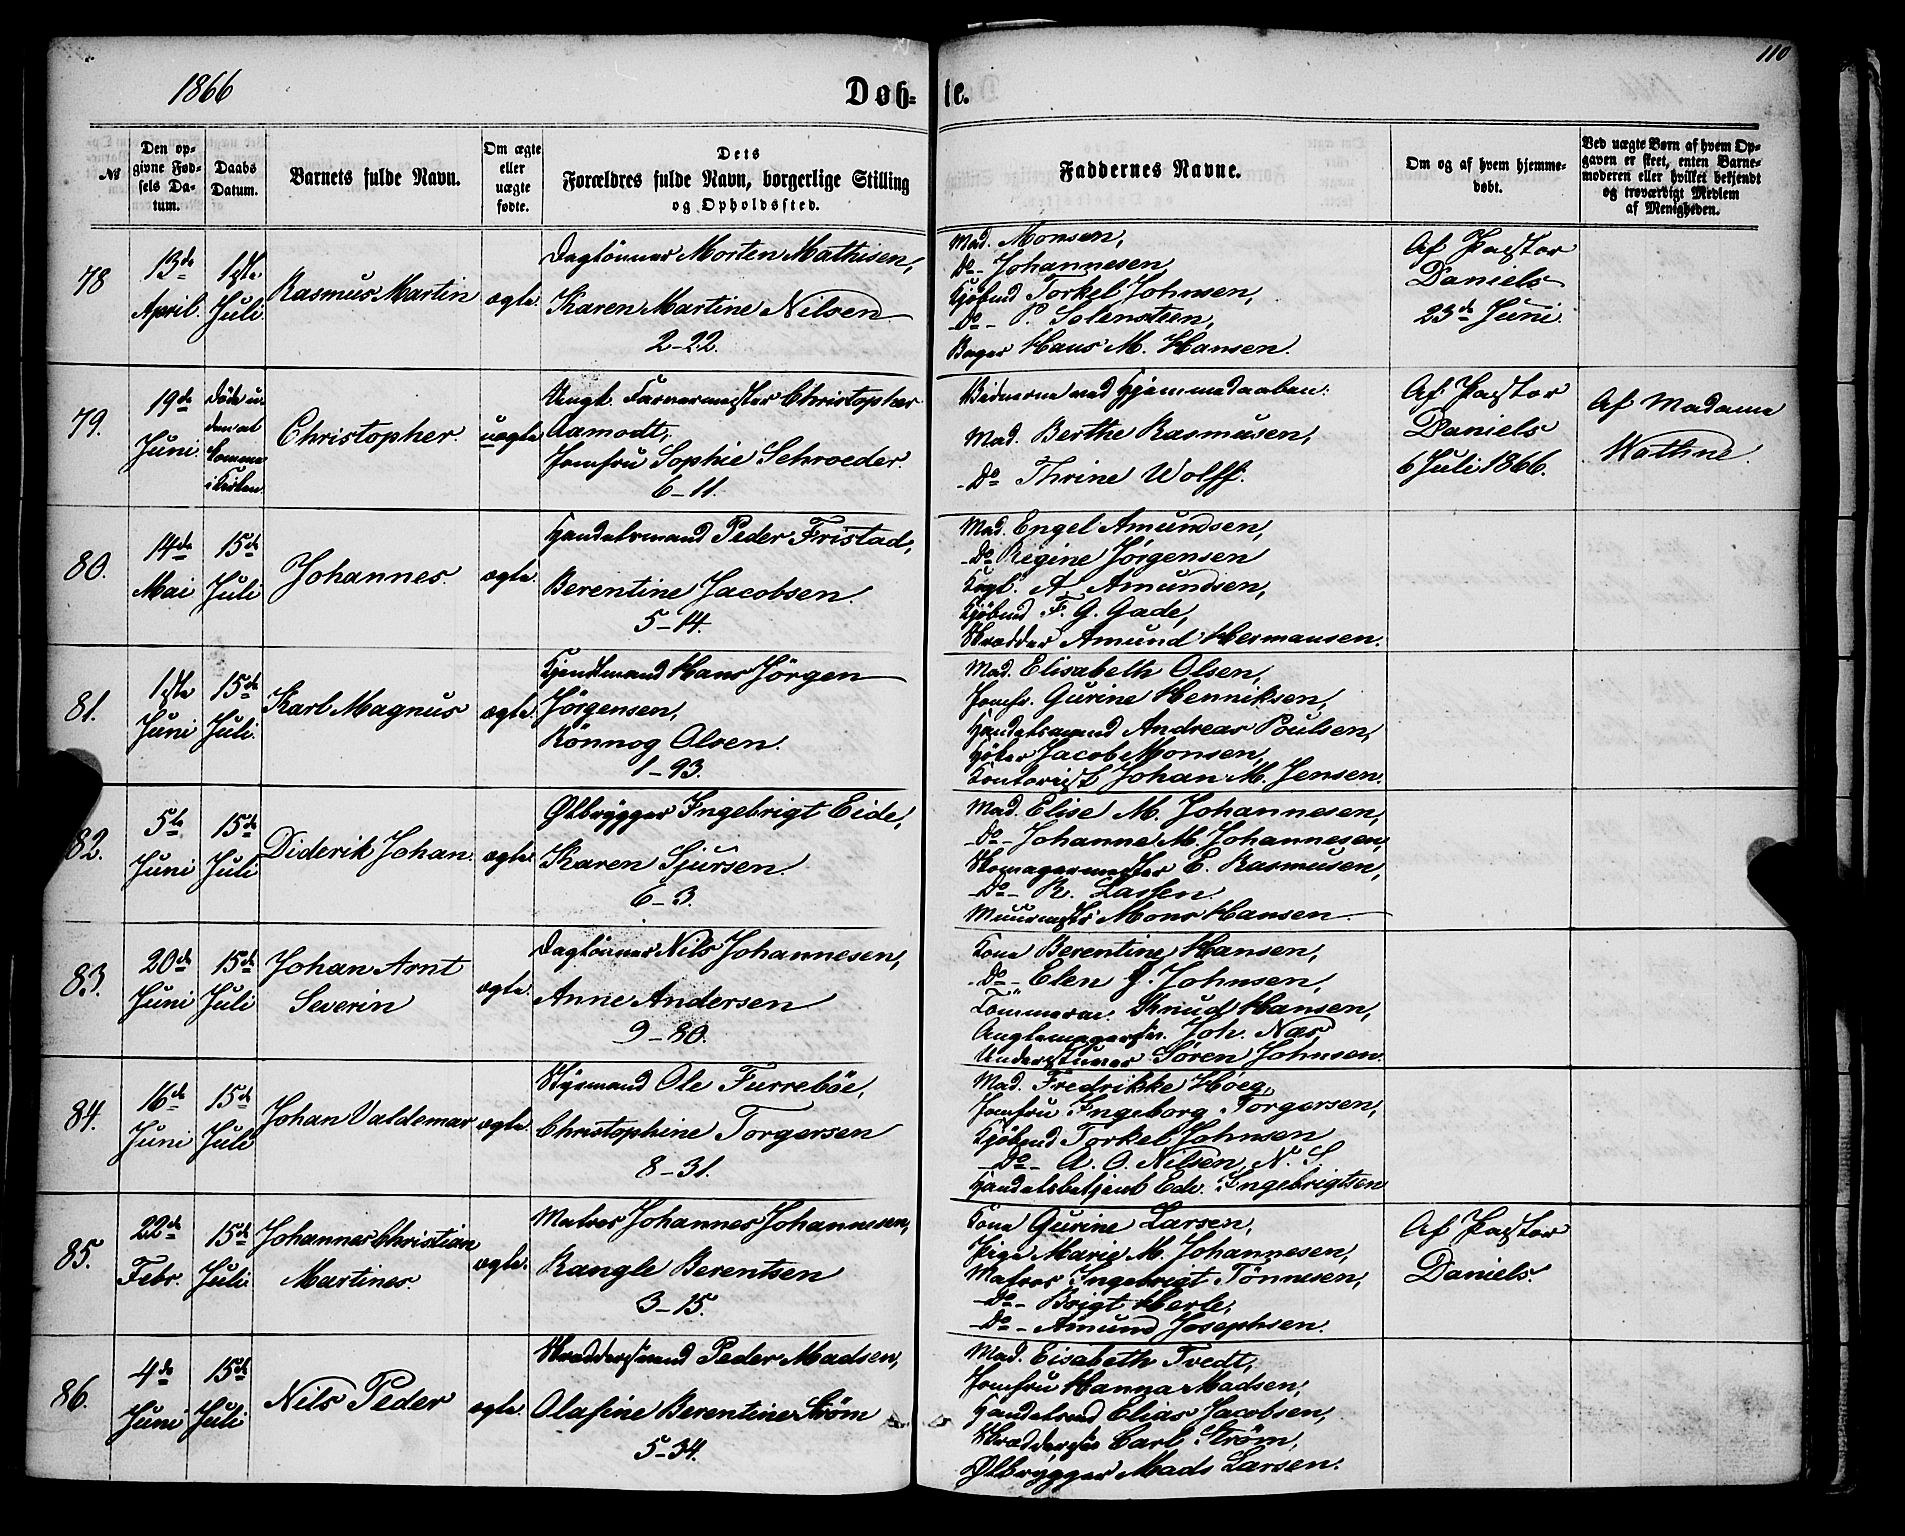 110
1866
Døb-
te.
№
Den op-
givne Fød-
sels Da-
tum.
Daabs
Datum.
Barnets fulde Navn.
Om ægte
eller
uægte
fødte.
Dets
Forældres fulde Navn, borgerlige Stilling
og Opholdssted.
Faddernes Navne.
Om og af hvem hjemme-
døbt.
Ved uægte Børn af hvem Op-
gaven er skeet, enten Barne-
moderen eller hvilket bekjendt
og troværdigt Medlem
af Menigheden.
78
13de
April.
1ste
Juli
Rasmus Martin
ægte.
Daglönner Morten Mathisen,
Karen Martine Nilsen
2-22.
Mad. Monsen,
Do- Johannesen,
Kjöbmd Torkel Johnsen,
Do- P. Solensteen,
Bager Hans M. Hansen.
Af Pastor
Daniels
23de Juni.
79.
19de
Juni.
Döde in-
den at
komme
i Kirken.
Christopher.
uægte
Ungk. Farvermester Christopher
Aamodt,
Jomfru Sophie Schroeder.
6-11.
Vidnerne ved Hjemmedaaben:
Mad. Berthe Rasmusen,
-Do Thrine Wolff.
Af Pastor
Daniels
6 Juli 1866.
Af Madame
Wathne.
80.
14de
Mai
15de
Juli
Johannes.
ægte.
Handelsmand Peder Fristad,
Berentine Jacobsen.
5-14.
Mad. Engel Amundsen,
-Do Regine Jörgensen
A. Amundsen,
Kjöbmd F. G. Gade,
Skrædder Amund Hermansen.
81.
1ste
Juni
15de
Juli.
Karl Magnus
ægte.
Kjendtmand Hans Jörgen
Jörgensen,
Rönnog Olsen.
1-93.
Mad. Elisabeth Olsen,
Jomfr. Gurine Henriksen,
Handelsmand Andreas Poulsen,
Höker Jacob Monsen,
Kontorist Johan M. Jensen.
82.
5te
Juni
15de
Juli
Diderik Johan.
ægte.
Ølbrygger Ingebrigt Eide,
Karen Sjursen.
6-3.
Mad. Elise M. Johannesen,
-Do- Johanne M. Johannesen,
Skomagermester E. Rasmusen,
-Do- R. Lassen.
Muurmester Mons Hansen
83.
20de
Juni
15de
Juli
Johan Arnt
Severin
ægte.
Daglönner Nils Johannesen,
Anne Andersen
9-80.
Kone Berentine Hansen,
-Do- Elen J. Johnsen,
Tömmerm. Knud Hansen,
Joh. Næs,
Understuver Sören Johnsen.
84.
16de
Juni
15de
Juli
Johan Valdemar
ægte.
Styrmand Ole Furreböe,
Christophine Torgersen
8-31.
Mad. Fredrikke Höeg,
Jomfru Ingeborg Torgersen,
Kjöbmd Torkel Johnsen
-Do- A. O. Nilsen, N. S.
Handelsbetjent Edv. Ingebrigtsen
85.
22de
Febr.
15de
Juli.
Johannes Christian
Martines.
ægte.
Matros Johannes Johannesen,
Rangle Berentsen
3-15.
Kone Gurine Larsen,
Pige Marie M. Johannesen,
Matros Ingebrigt Tönnesen,
-Do- Brigt Herle,
-Do- Amund Josephsen.
Af Pastor
Daniels.
86.
4de
Juni
15de
Juli
Nils Peder
ægte.
Peder Madsen,
Olafine Berentine Ström
5-34.
Mad. Eisabeth Tvedt,
Jomfru Hanna Madsen,
Handelsmd Elias Jacobsen,
Carl Ström,
Ølbrygger Mads Larsen.